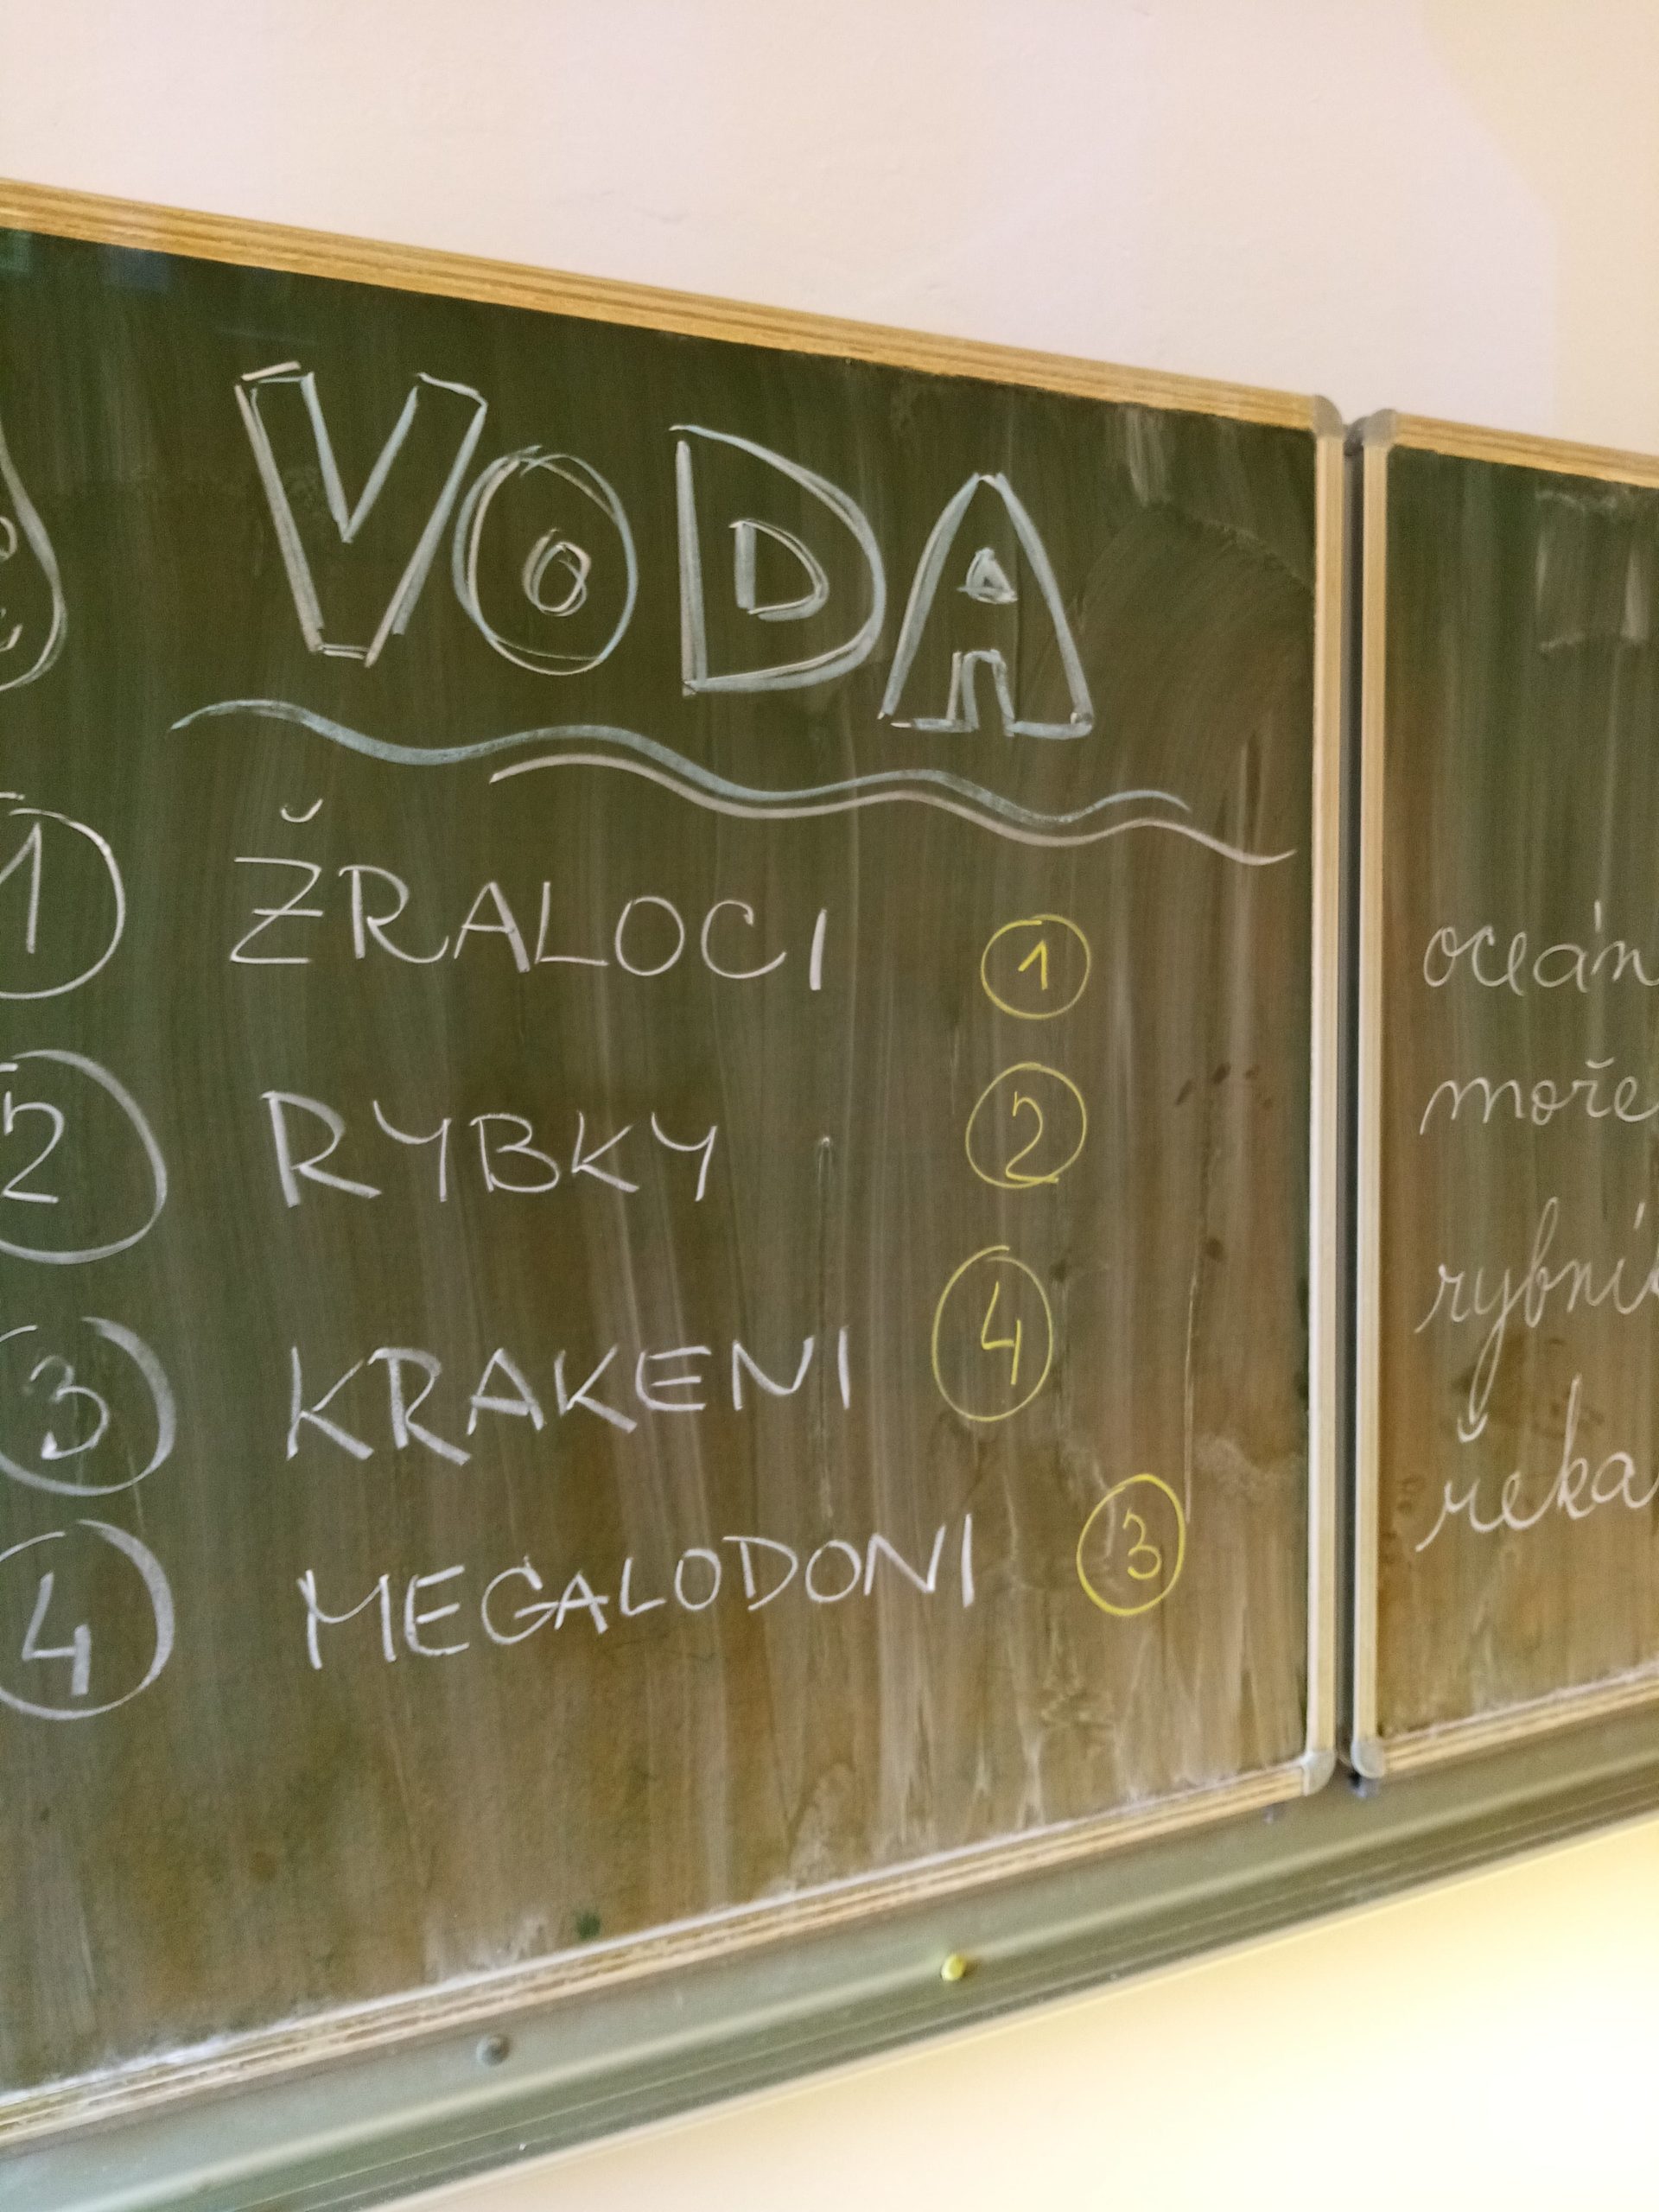 VODA
1 ŽRALOCI 1
2 RYBKY 2
3 KRAKENI 4
4 MEGALODONI 3
oceán
moře
řeka